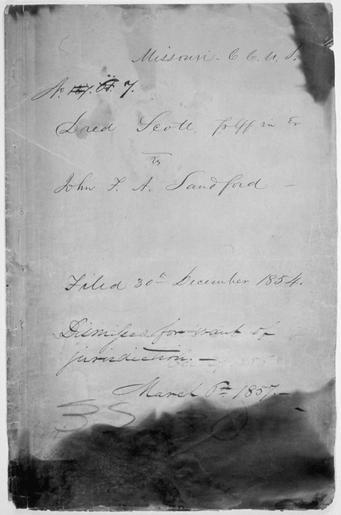 Missouri C. C. U. S.
No. 7.
Dred Scott, Plff in Er
vs
John F. A. Sandford —
Filed 30th December 1854.
Dismissed for want of
jurisdiction. —
March 6th 1857. —